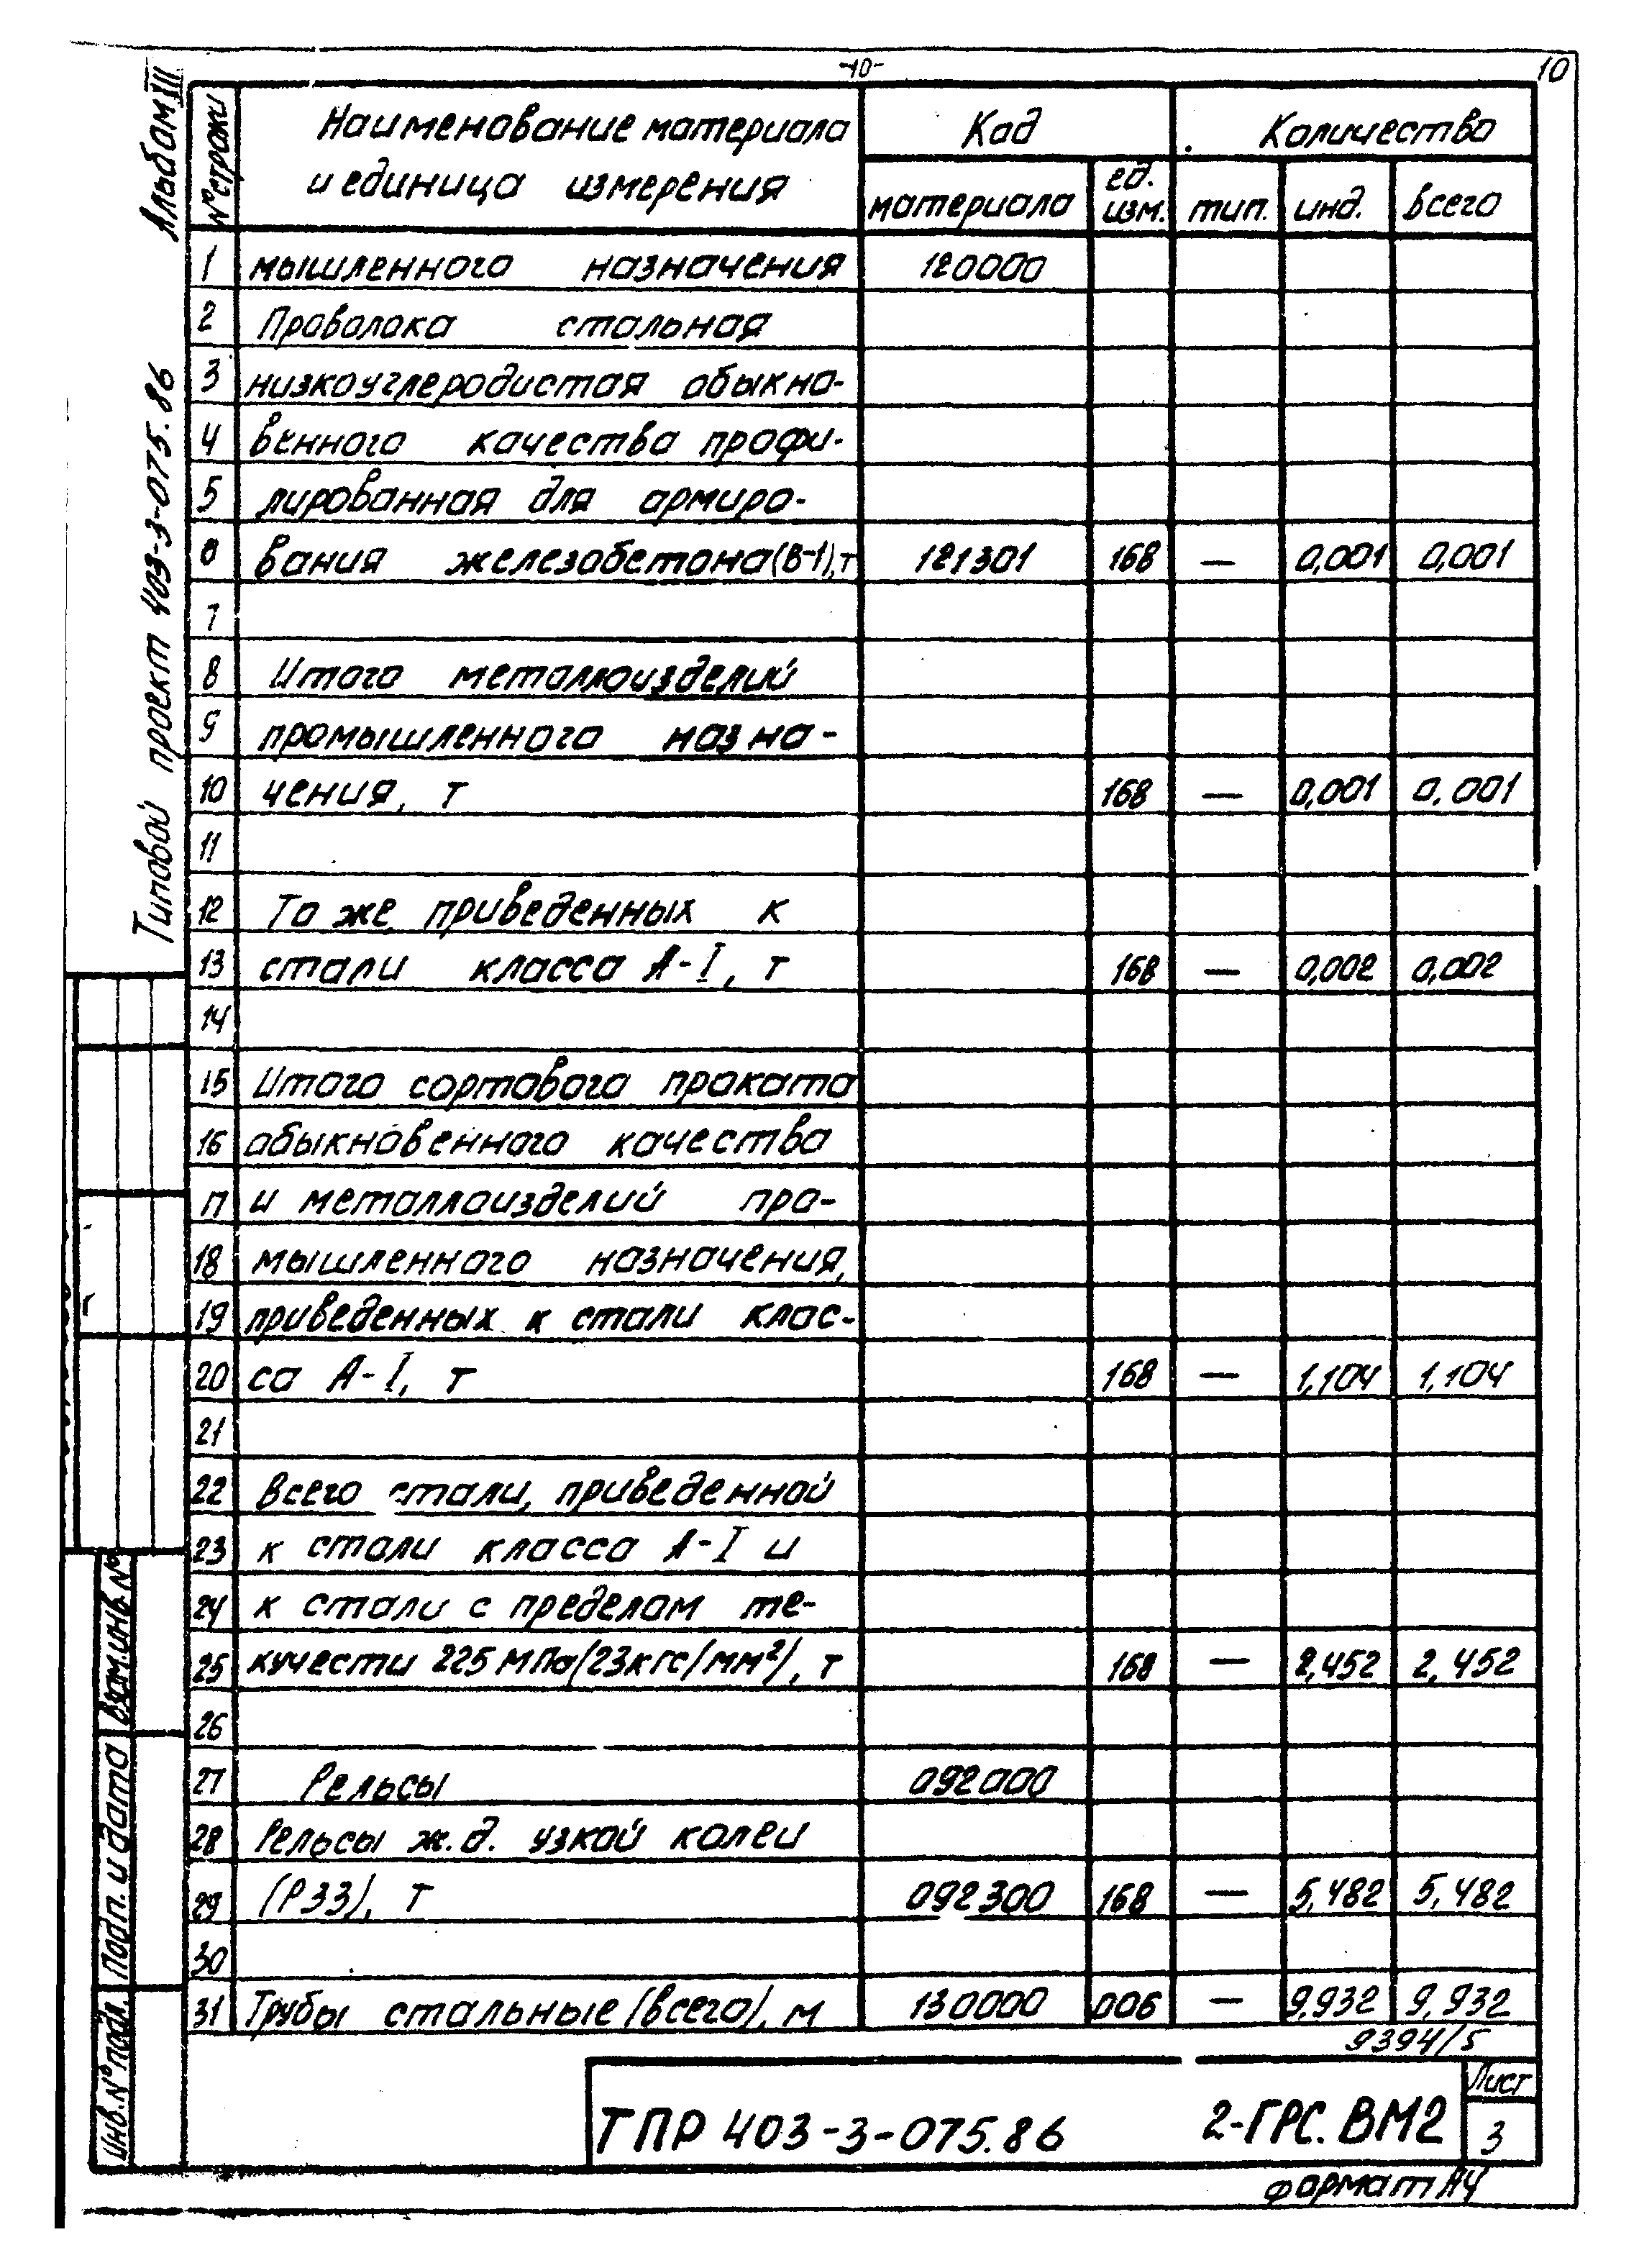 -10-
10
Альбом III
Типовой проект 403-3-075.86
№ строки
Наименование материала
и единица измерения
Код
Количество
материала
ед.
изм.
тип.
инд.
всего
1 мышленного назначения 120000
2 Проволока стальная
3 низкоуглеродистая обыкно-
4 венного качества профи-
5 лированная для армиро-
6 вания железобетона (В-I), т 121301 168 — 0,001 0,001
7
8 Итого металлоизделий
9 промышленного назна-
10 чения, т 168 — 0,001 0,001
11
12 То же, приведенных к
13 стали класса А-I, т 168 — 0,002 0,002
14
15 Итого сортового проката
16 обыкновенного качества
17 и металлоизделий про-
18 мышленного назначения,
19 приведенных к стали клас-
20 са А-I, т 168 — 1,104 1,104
21
22 Всего стали, приведенной
23 к стали класса А-I и
24 к стали с пределом те-
25 кучести 225 МПа/23кгс/мм²/, т 168 — 2,452 2,452
26
27 Рельсы 092000
28 Рельсы ж.д. узкой колеи
29 (Р33), т 092300 168 — 5,482 5,482
30
31 Трубы стальные /всего/, м 130000 006 — 9,932 9,932
9394/5
ТПР 403-3-075.86
2-ГРС.ВМ2
Лист
3
Формат А4
Взам.инв.№
Подп. и дата
Инв.№ подл.